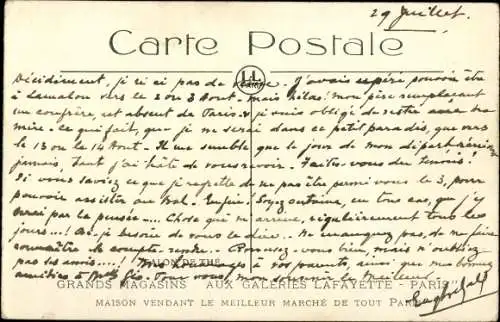 29 Juillet.
Carte Postale
Décidément, je n'ai pas de veine. J'avais espéré pouvoir être
à Lamalou vers le 2 ou 3 Août. mais hélas! mon père remplaçant
un confrère, est absent de Paris & je suis obligé de rester avec ma
mère. Ce qui fait, que je ne serai dans ce petit paradis, que vers
le 13 ou le 14 Août. Il me semble que le jour de mon départ
jamais, tant j'ai hâte de vous revoir. Faites-vous du tennis!
Si vous saviez ce que je regrette de ne pas être parmi vous le 3, pour
pouvoir assister au bal. Enfin! Soyez certaine, en tous cas, que j'y
serai par la pensée... Chose qui m'arrive, régulièrement tous les
jours...! Ai-je besoin de vous le dire. Ne manquez pas, de me faire
connaître le compte-rendu. Amusez-vous bien, mais n'oubliez
pas les amis....! à vos parents, ainsi que mes bonnes
amitiés à Pour vous, mon souvenir le Meilleur.
SALON DE THÉ
GRANDS MAGASINS AUX GALERIES LAFAYETTE - PARIS
MAISON VENDANT LE MEILLEUR MARCHÉ DE TOUT PARIS